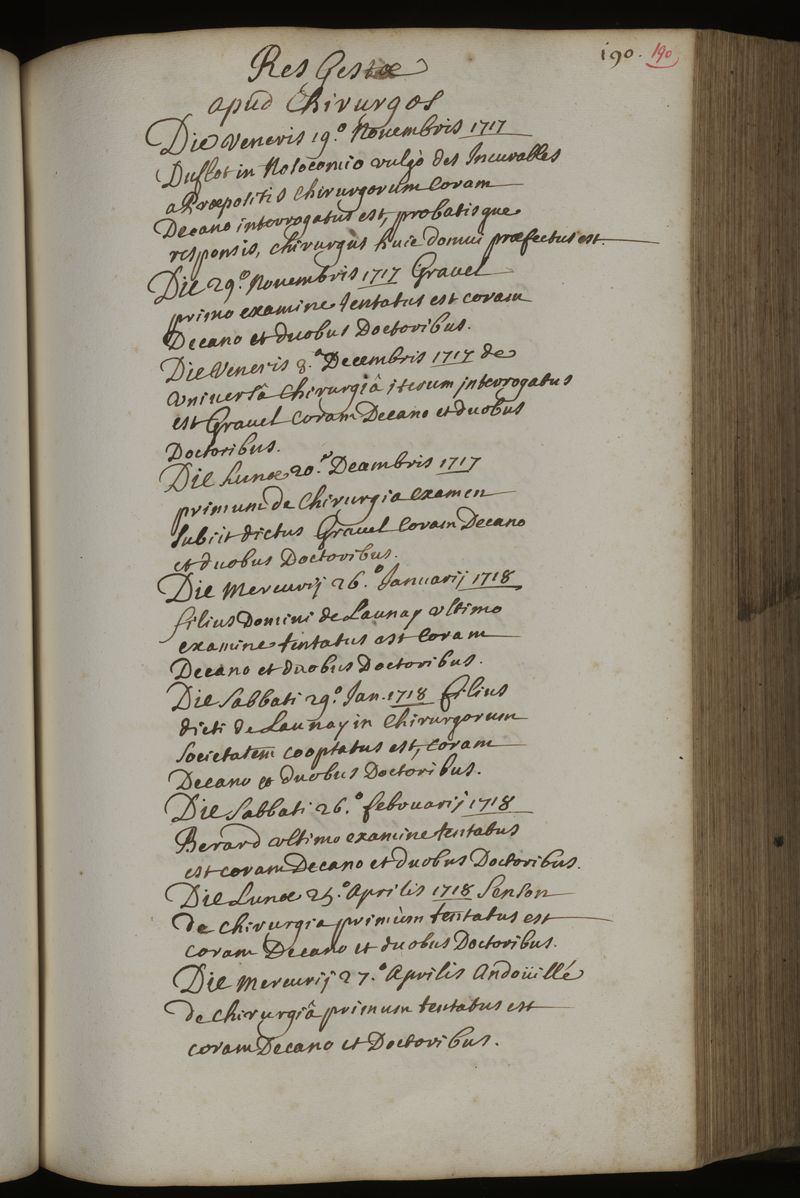 190. 190
Res Gestæ
apud Chirurgos
Die Veneris 19.° Novembris 1717
Duflot in Nosocomio vulgò des Incurables
a Præpositis Chirurgorum Coram
Decano interrogatus est, probatisque
responsis, chirurgus huic domui præfectus est.
Die 29.° Novembris 1717 Gravel
primo examine tentatus est coram
Decano et duobus Doctoribus.
Die Veneris 8.a Decembris 1717 de
universâ Chirurgiâ iterum interrogatus
est Gravel Coram Decano et duobus
Doctoribus.
Die Lunæ 20.° Decembris 1717
primum de Chirurgia examen
subiit dictus Gravel Coram Decano
et duobus Doctoribus.
Die Mercurij 26.° Januarij 1718
filius Domini de Launay ultimo
examine tentatus est Coram
Decano et duobus Doctoribus.
Die Sabbati 29.° Jan. 1718 filius
dicti de Launay in Chirurgorum
Societatem cooptatus est, coram
Decano & duobus Doctoribus.
Die Sabbati 26.° februarij 1718
Berard ultimo examine tentatus
est coram Decano et duobus Doctoribus.
Die Lunæ 25.° Aprilis 1718 Senson
de chirurgia primùm tentatus est
coram Decano et duobus Doctoribus.
Die Mercurij 27.° Aprilis Andoüillé
de Chirurgiâ primum tentatus est
coram Decano et Doctoribus.